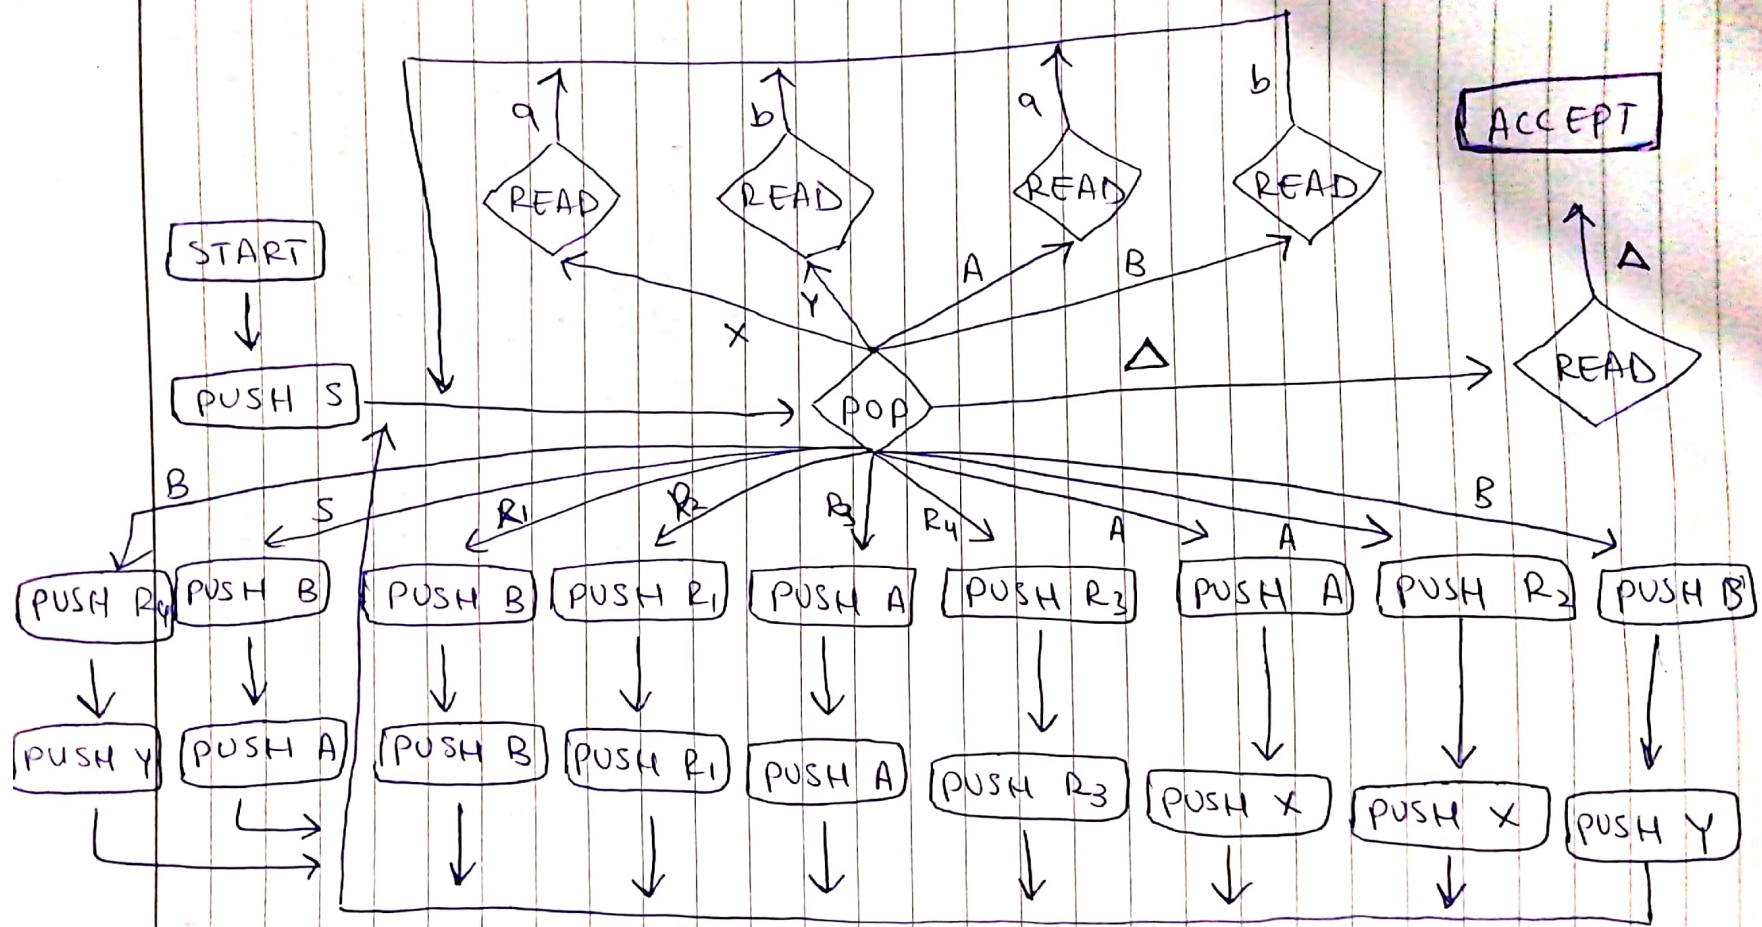 a b a b
ACCEPT
READ READ READ READ
START
Δ
X Y A B
Δ
READ
PUSH S
POP
B S R1 R2 R3 R4 A A B
PUSH R4 PUSH B PUSH B PUSH R1 PUSH A PUSH R3 PUSH A PUSH R2 PUSH B
PUSH Y PUSH A PUSH B PUSH R1 PUSH A PUSH R3 PUSH X PUSH X PUSH Y